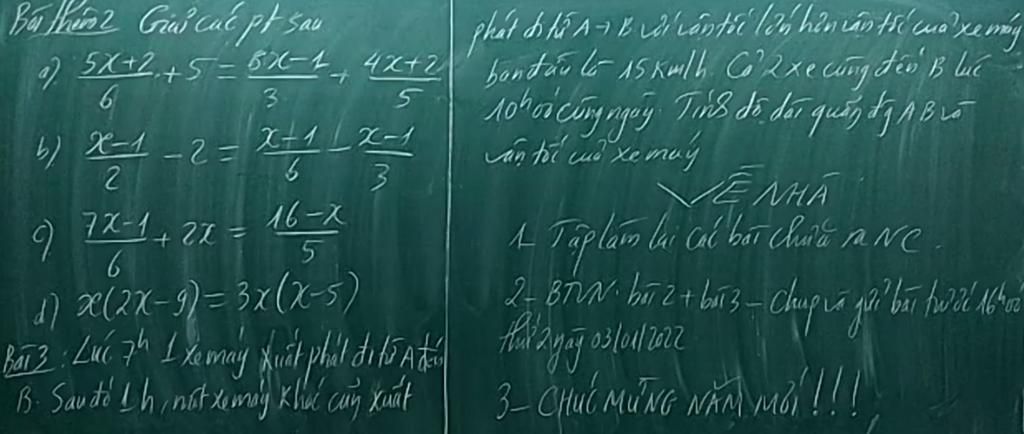 Bài thêm 2 Giải các pt sau
a) (5x+2)/6 + 5 = (8x-1)/3 + (4x+2)/5
b) (x-1)/2 - 2 = (x-1)/6 - (x-1)/3
c) (7x-1)/6 + 2x = (16-x)/5
d) x(2x-9) = 3x(x-5)
Bài 3: Lúc 7h 1 xe máy xuất phát đi từ A đến
B. Sau đó 1h, một xe máy khác cũng xuất
phát đi từ A → B với vận tốc lớn hơn vận tốc của xe máy
ban đầu là 15km/h. Cả 2 xe cùng đến B lúc
10h00 cùng ngày. Tính độ dài quãng đg AB và
vận tốc của xe máy
VỀ NHÀ
1- Tập làm lại các bài chữa NC.
2- BTVN: bài 2 + bài 3 - chụp và gửi bài trước 16h00
thứ 2 ngày 03/01/2022
3- CHÚC MỪNG NĂM MỚI!!!